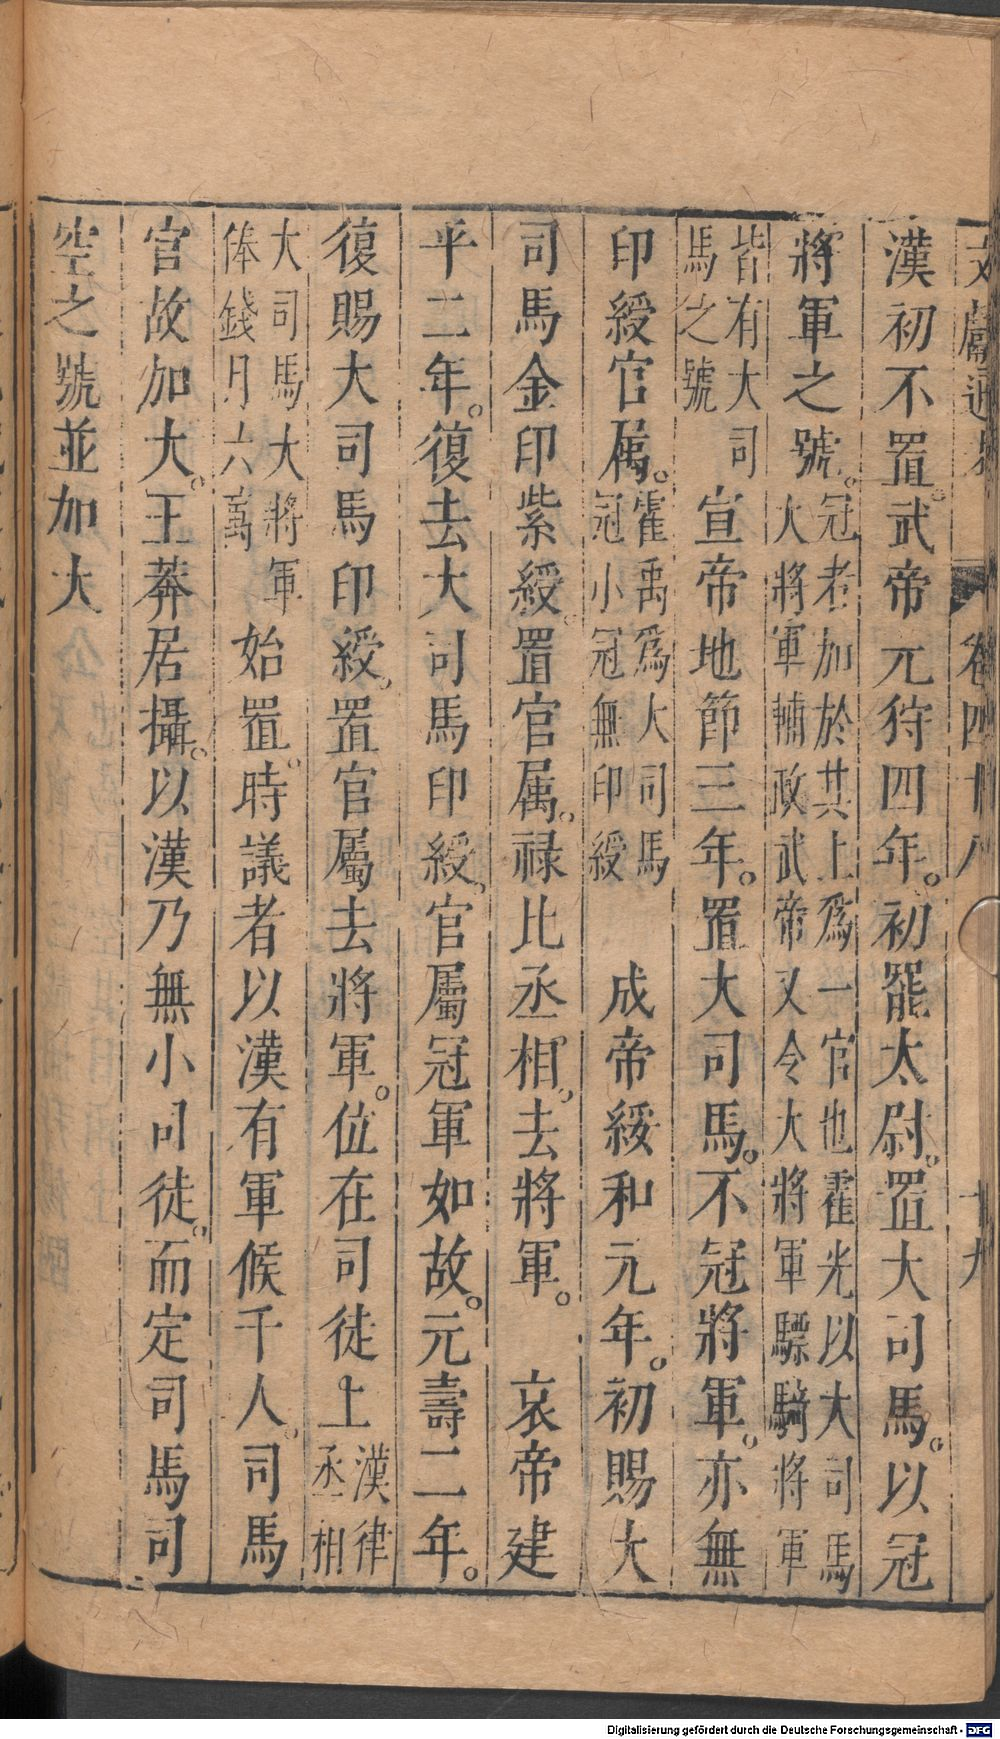 文獻通考 卷四十八 十九
漢初不置武帝元狩四年。初罷太尉。置大司馬。以冠
將軍之號。冠者加於其上爲一官也霍光以大司馬大將軍輔政武帝又令大將軍驃騎將軍
皆有大司馬之號 宣帝地節三年。置大司馬。不冠將軍。亦無
印綬官属。霍禹爲大司馬冠小冠無印綬 成帝綏和元年。初賜大
司馬金印紫綬。置官属。禄比丞相。去將軍。 哀帝建
平二年。復去大司馬印綬。官屬冠軍如故。元壽二年。
復賜大司馬印綬。置官屬去將軍。位在司徒上漢律丞相
大司馬大將軍俸錢月六萬 始置。時議者以漢有軍候千人。司馬
官故加大。王莽居攝。以漢乃無小司徒。而定司馬司
空之號並加大
Digitalisierung gefördert durch die Deutsche Forschungsgemeinschaft - DFG